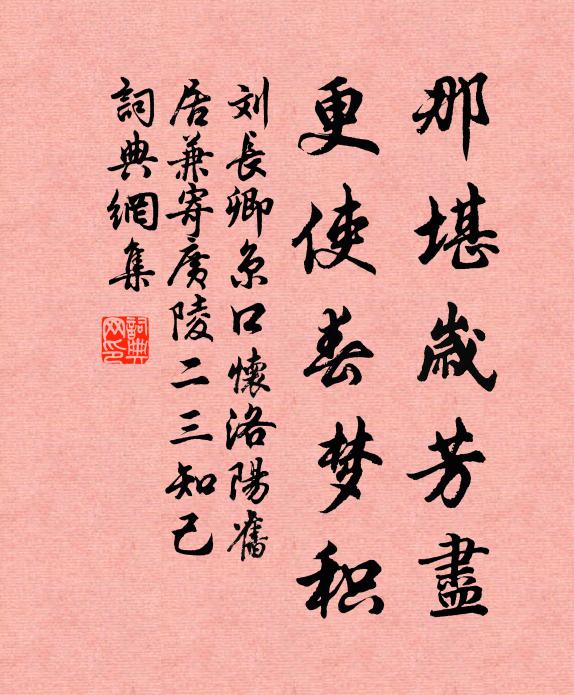 那堪歲芳盡
更使春梦积
刘長卿京口懷洛陽舊
居兼寄廣陵二三知己
詞典網集
詞典网印